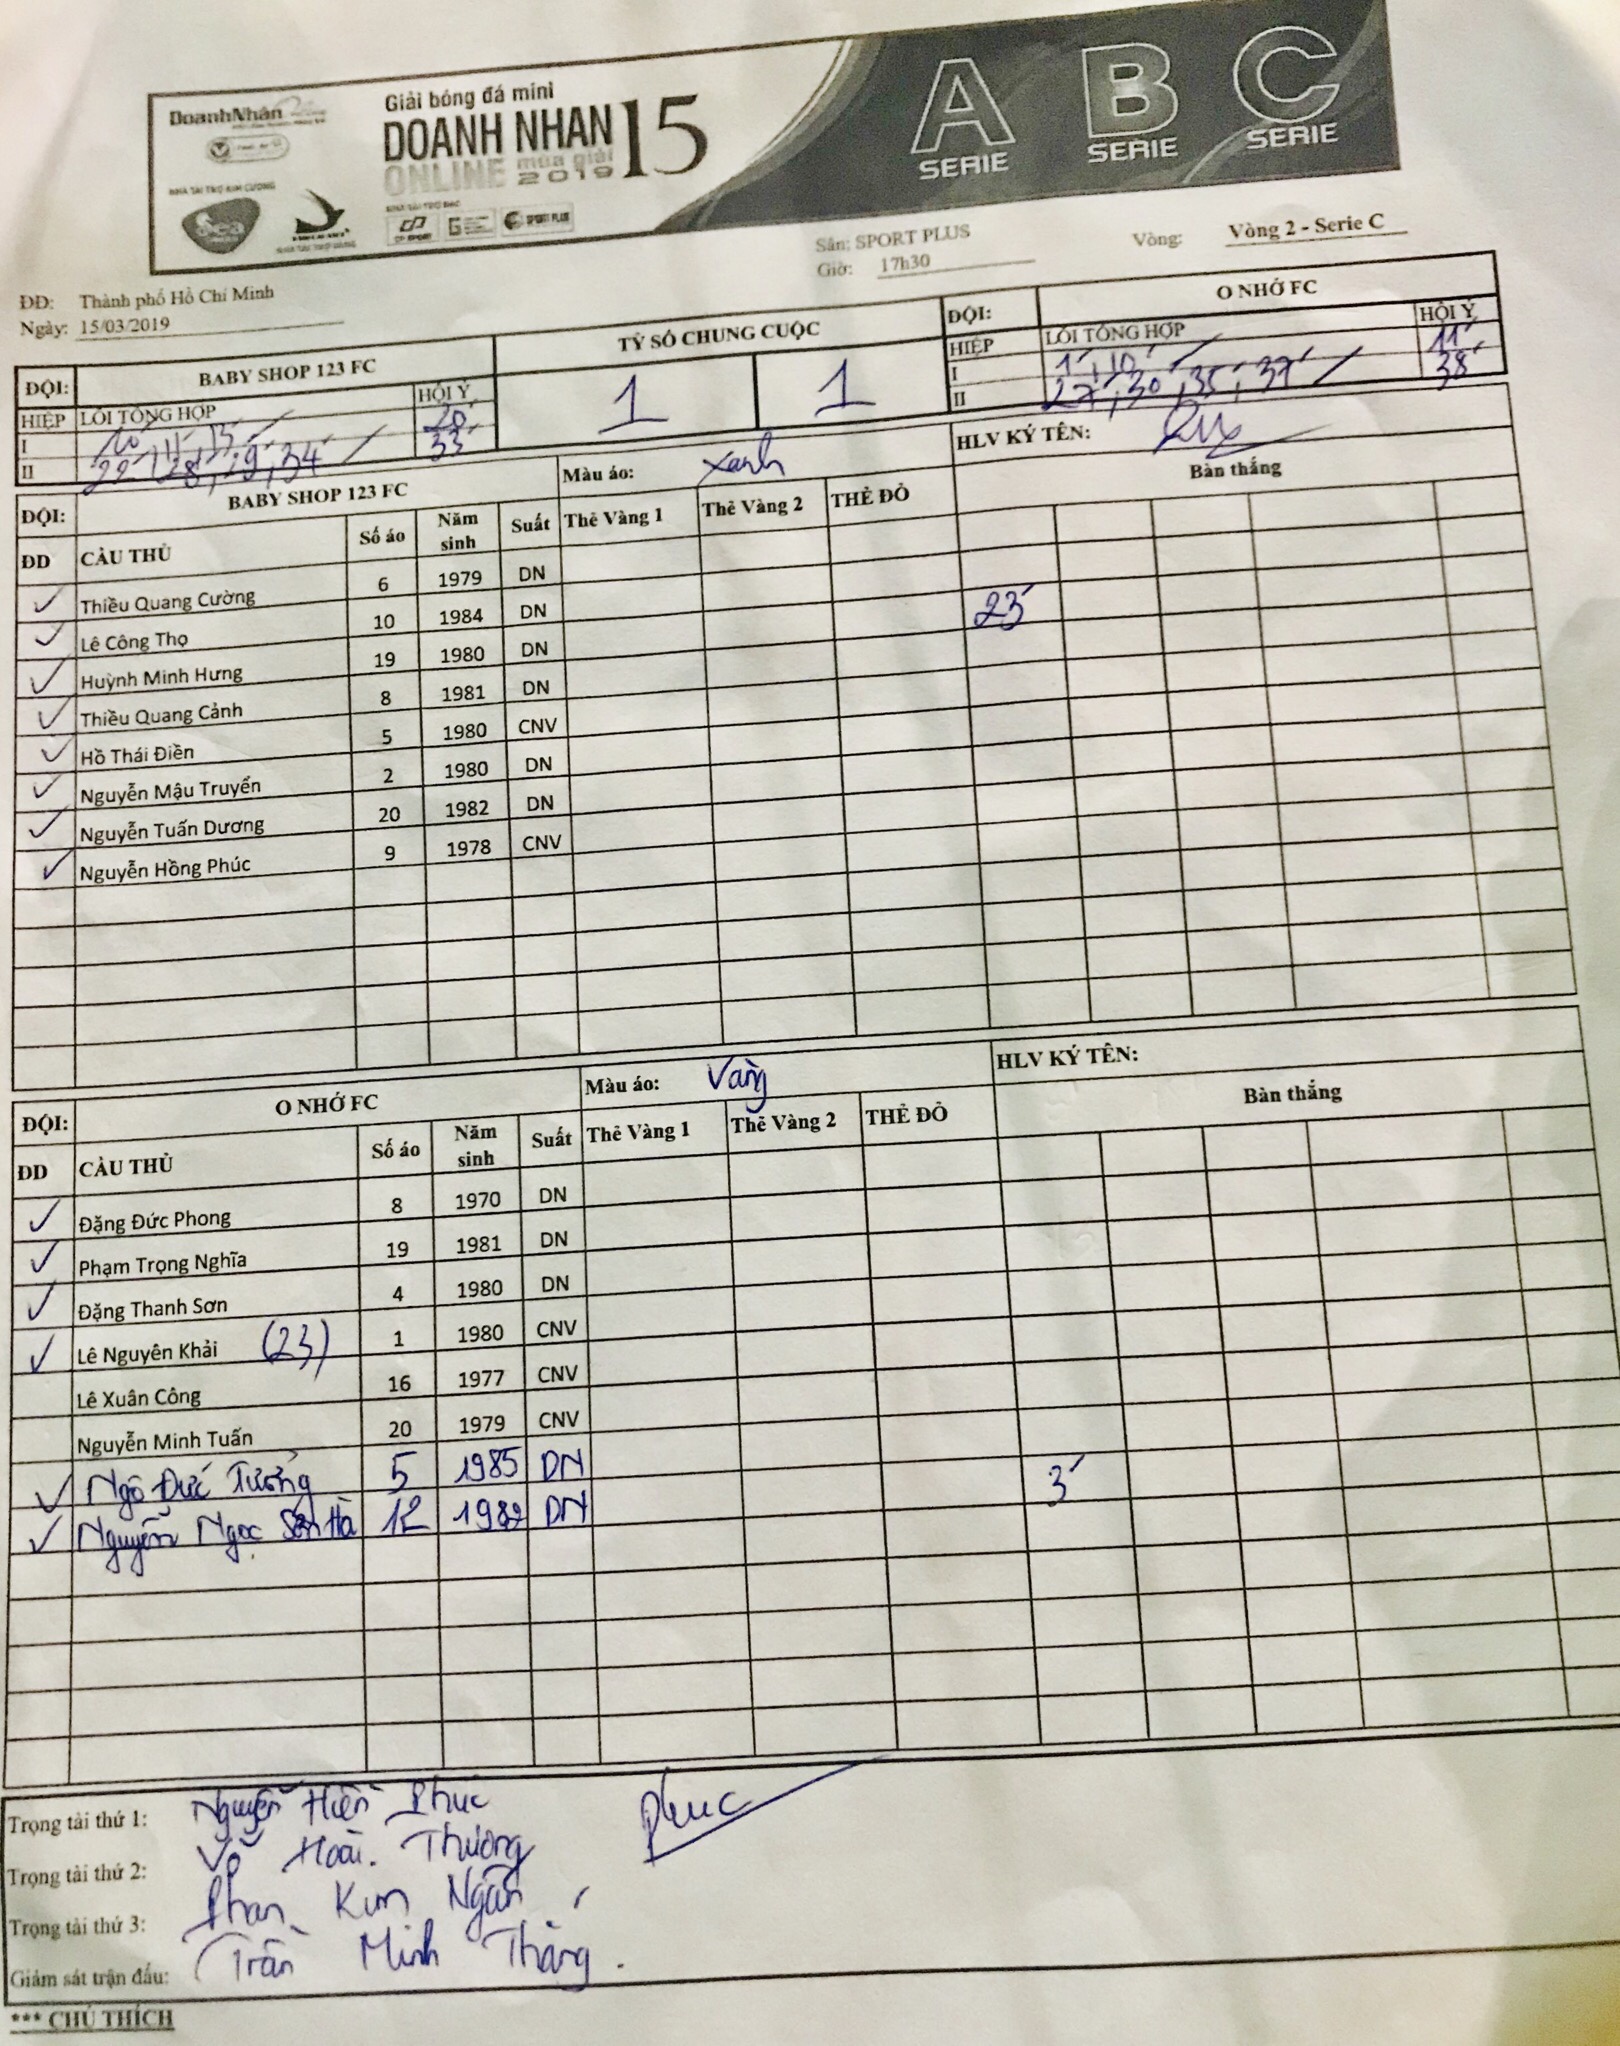 DoanhNhân
Giải bóng đá mini
DOANH NHAN 15
ONLINE mùa giải 2019
NHÀ TÀI TRỢ KIM CƯƠNG
NHÀ TÀI TRỢ BẠC
Sea
SPORT PLUS
A SERIE B SERIE C SERIE
Sân: SPORT PLUS Vòng: Vòng 2 - Serie C
Giờ: 17h30
ĐĐ: Thành phố Hồ Chí Minh
Ngày: 15/03/2019
ĐỘI: BABY SHOP 123 FC TỶ SỐ CHUNG CUỘC ĐỘI: O NHỚ FC
HIỆP LỖI TỔNG HỢP HỘI Ý 1 1 HIỆP LỖI TỔNG HỢP HỘI Ý
I 10', 11', 13' 20' I 1', 10' 11'
II 22', 28', 29', 34' 33' II 27', 30', 35', 37' 38'
ĐỘI: BABY SHOP 123 FC Màu áo: Xanh HLV KÝ TÊN:
ĐD CẦU THỦ Số áo Năm sinh Suất Thẻ Vàng 1 Thẻ Vàng 2 THẺ ĐỎ Bàn thắng
✓ Thiều Quang Cường 6 1979 DN
✓ Lê Công Thọ 10 1984 DN 23'
✓ Huỳnh Minh Hưng 19 1980 DN
✓ Thiều Quang Cảnh 8 1981 DN
✓ Hồ Thái Điền 5 1980 CNV
✓ Nguyễn Mậu Truyển 2 1980 DN
✓ Nguyễn Tuấn Dương 20 1982 DN
✓ Nguyễn Hồng Phúc 9 1978 CNV
ĐỘI: O NHỚ FC Màu áo: Vàng HLV KÝ TÊN:
ĐD CẦU THỦ Số áo Năm sinh Suất Thẻ Vàng 1 Thẻ Vàng 2 THẺ ĐỎ Bàn thắng
✓ Đặng Đức Phong 8 1970 DN
✓ Phạm Trọng Nghĩa 19 1981 DN
✓ Đặng Thanh Sơn 4 1980 DN
✓ Lê Nguyên Khải (23) 1 1980 CNV
Lê Xuân Công 16 1977 CNV
Nguyễn Minh Tuấn 20 1979 CNV
✓ Ngô Đức Tưởng 5 1985 DN 3'
✓ Nguyễn Ngọc Sơn Hà 12 1982 DN
Trọng tài thứ 1: Nguyễn Hiền Phúc Phuc
Trọng tài thứ 2: Võ Hoài Thương
Trọng tài thứ 3: Phan Kim Ngân
Giám sát trận đấu: Trần Minh Thắng.
*** CHÚ THÍCH